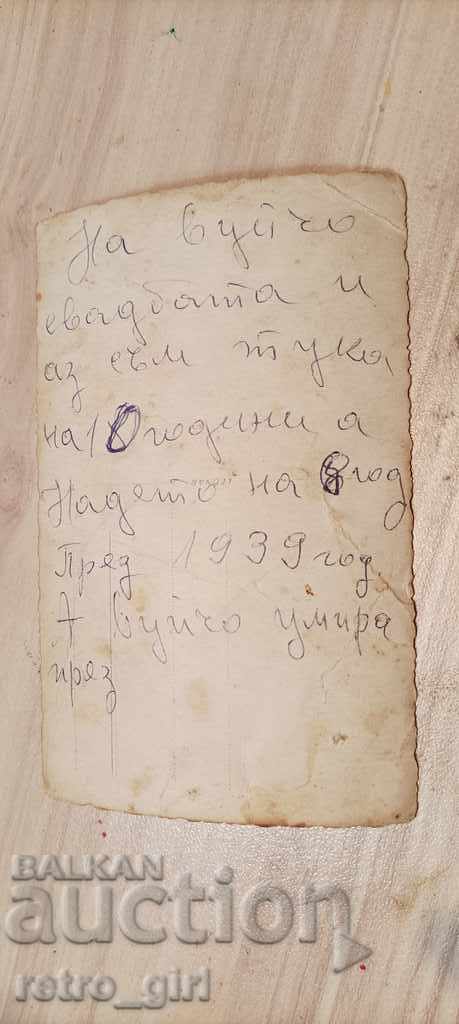 На вуйчо
свадбата и
аз съм тука
на 10 години а
Надето на 8 год
През 1939 год.
А вуйчо умира
през
BALKAN
auction
retro_girl